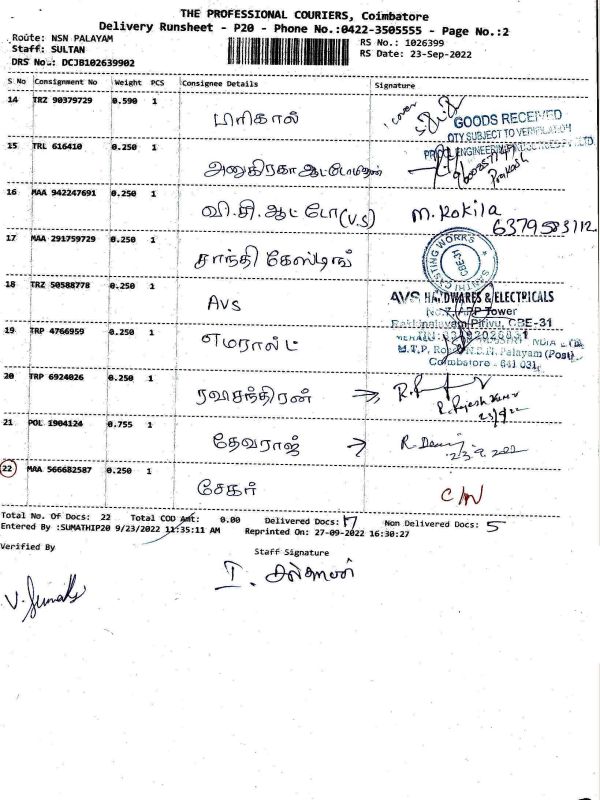 THE PROFESSIONAL COURIERS, Coimbatore
Delivery Runsheet - P20 - Phone No.:0422-3505555 - Page No.:2
Route: NSN PALAYAM
Staff: SULTAN
DRS No.: DCJB102639902
RS No.: 1026399
RS Date: 23-Sep-2022
S No Consignment No Weight PCS Consignee Details Signature
14 TRZ 90379729 0.590 1 பரிகால் 1 cover
GOODS RECEIVED
QTY SUBJECT TO VERIFICATION
15 TRL 616410 0.250 1 அனுகிரகா ஆட்டோ
Prakash
16 MAA 942247691 0.250 1 வி.சி.ஆட்டோ (V.S) M. Kokila
6379583112
17 MAA 291759729 0.250 1 சாந்தி கேஸ்டிங்
SANTHI CASTING WORKS
CBE-31
18 TRZ 50588778 0.250 1 AVS
AVS HARDWARES & ELECTRICALS
Tower
Pirivu, CBE-31
19 TRP 4766959 0.250 1 எமரால்ட்
INDIA
M.T.P. Road N.S.N. Palayam (Post)
Coimbatore - 641 031.
20 TRP 6924026 0.250 1 ரவிசந்திரன் →
R. Rajesh Kumar
23/9/22
21 POL 1904124 0.755 1 தேவராஜ் →
23.9.2022
22 MAA 566682587 0.250 1 சேகர் C/N
Total No. Of Docs: 22 Total COD Amt: 0.00 Delivered Docs: 17 Non Delivered Docs: 5
Entered By :SUMATHIP20 9/23/2022 11:35:11 AM Reprinted On: 27-09-2022 16:30:27
Verified By
Staff Signature